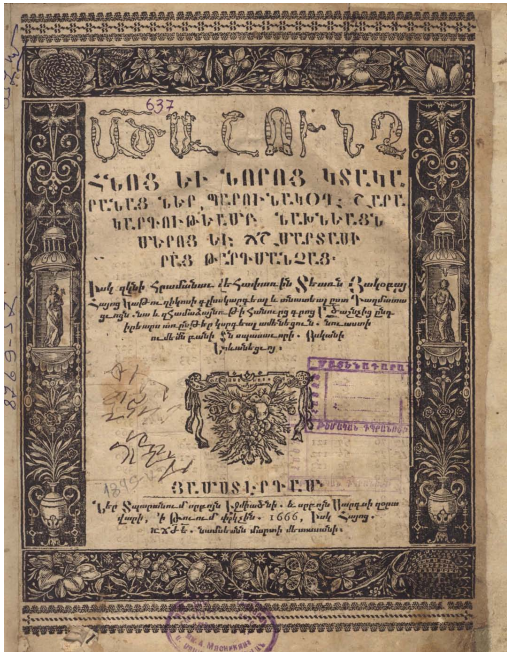 637
ԱԾԱՇՈՒՆՉ
ՀՆՈՑ ԵՒ ՆՈՐՈՑ ԿՏԱԿԱ
ՐԱՆԱՑ ՆԵՐ ՊԱՐՈՒՆԱԿՕՂ: ՇԱՐԱ
ԿԱՐԳՈՒԹԵԱՄԲ ՆԱԽՆԵԱՑՆ
ՄԵՐՈՑ ԵՒ ՃՇՄԱՐՏԱՍԻ
ՐԱՑ ԹԱՐԳՄԱՆՉԱՑ.
Իսկ զկնի Հրամանաւ մեծափառին Տեառն Յակօբայ
Հայոց Կաթուղիկոսի գլխակարգեալ և տնատեալ ըստ Դաղմատա
ցւոյն. նա և զՀամաձայնութի գրոց Ածաշնչից ընդ
իրեարս առընթեր կարգեալ ամենեցուն. նուաստի
ումեմն բանի Քն սպասաւորի. Օսկանի
Երևանեցւոյ.
ՅԱՄՍՏԵՐԴԱՄ
Ներ Տպարանում սրբոյն Էջմիածնի. և սրբոյն Սարգսի զօրա
վարի, Ի Թուում փրկչին. 1666, Իսկ Հայոց.
ՌՃԺԵ. մարտի մետասանի.